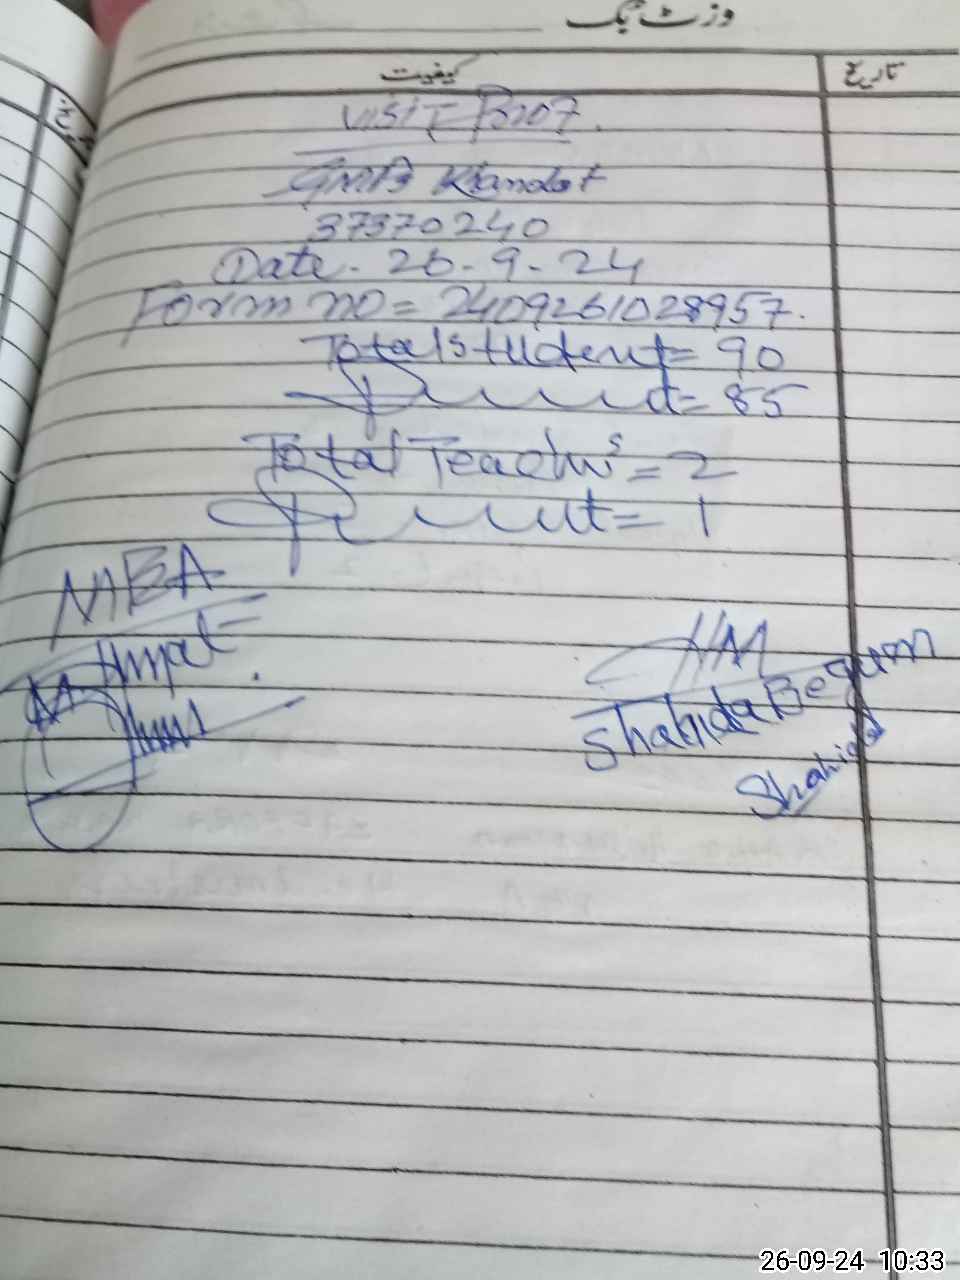 وزٹ بک
کیفیت
تاریخ
VISIT Prof.
GMPS Kandot
37370240
Date. 26.9.24
Form no = 2409261028957.
Total student = 90
Present = 85
Total Teachers = 2
Present = 1
HM
Shahida Begum
Shahida
26-09-24 10:33